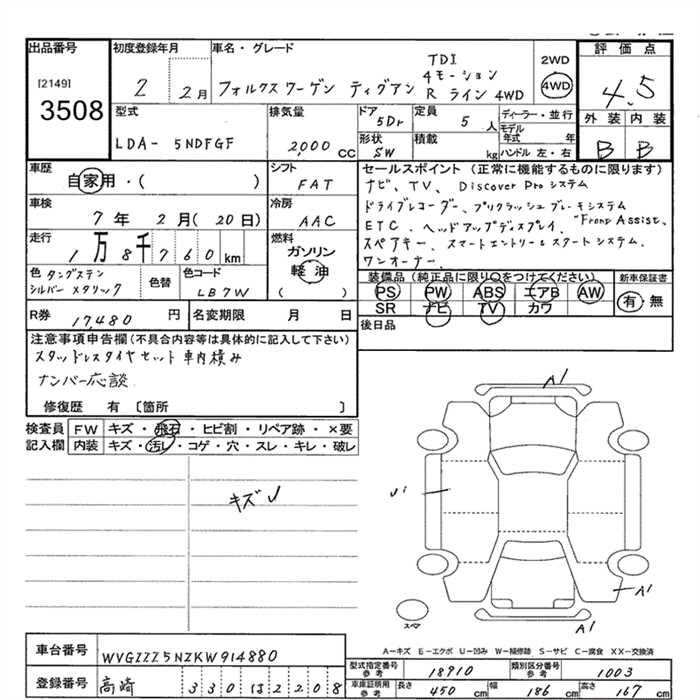 出品番号
[2149]
3508
初度登録年月
2 2月
車名・グレード
フォルクスワーゲン ティグアン
TDI
4モーション
R ライン 4WD
2WD
4WD
評価点
4.5
外装 内装
B B
型式
LDA- 5NDFGF
排気量
2,000 CC
ドア
5Dr
形状
SW
定員
5 人
積載
kg
ディーラー・並行
モデル年式 年
ハンドル 左・右
車歴
自家用・( )
シフト
FAT
車検
7年 2月(20日)
冷房
AAC
走行
1万8千760km
燃料
ガソリン
軽油
( )
色 タングステン
シルバー メタリック
色替
色コード
LB7W
R券 17,480 円
名変期限 月 日
セールスポイント(正常に機能するものに限ります)
ナビ、TV、Discover Proシステム
ドライブレコーダー、プリクラッシュブレーキシステム
ETC、ヘッドアップディスプレイ、"Front Assist"、
スペアキー、スマートエントリー&スタートシステム、
ワンオーナー、
装備品(純正品に限り○をつけてください)
PS PW ABS エアB AW
SR ナビ TV カワ
新車保証書
有・無
後日品
注意事項申告欄(不具合内容等は具体的に記入して下さい)
スタッドレスタイヤセット 車内積み
ナンバー応談
修復歴 有 〔箇所 〕
検査員記入欄
FW キズ・飛石・ヒビ割・リペア跡・×要
内装 キズ・汚レ・コゲ・穴・スレ・キレ・破レ
キズ✓
A1
A1
A1
スペア
A-キズ E-エクボ U-凹み W-補修跡 S-サビ C-腐食 XX-交換済
車台番号 WVGZZZ5NZKW914880
登録番号 高崎 330 は 2208
型式指定番号 参考 18910
類別区分番号 参考 1003
車庫証明用 参考 長さ 450 cm 幅 186 cm 高さ 167 cm